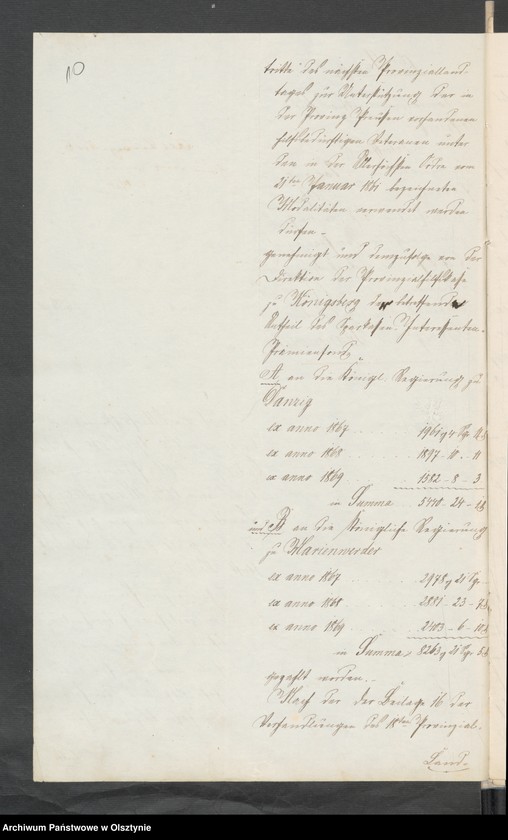 10
tritte des nächsten Provinzialland-
tages zur Unterstützung der in
der Provinz Preußen vorhandenen
hilfsbedürftigen Veteranen unter
den in der Allerhöchsten Ordre vom
21ten Januar 1861 bezeichneten
Modalitäten verwendet werden
dürfen.-
genehmigt und demzufolge von der
Direktion der Provinzialhilfskasse
zu Königsberg der betreffende
Antheil des Sparkassen-Interessenten-
Prämienfonds
A. an die Königl. Regierung zu
Danzig
ex anno 1867
ex anno 1868 1897 - 10 - 11
ex anno 1869 1582 - 8 - 3
in Summa
und B. an die Königliche Regierung
zu Marienwerder
ex anno 1867 2978 21
ex anno 1868 2881 - 23 - 7
ex anno 1869 2403 - 6 - 10
in Summa 8263 21 5
gezahlt worden.-
Nach der der Beilage 16 der
Verhandlungen des 18ten Provinzial-
Land-
Archiwum Państwowe w Olsztynie